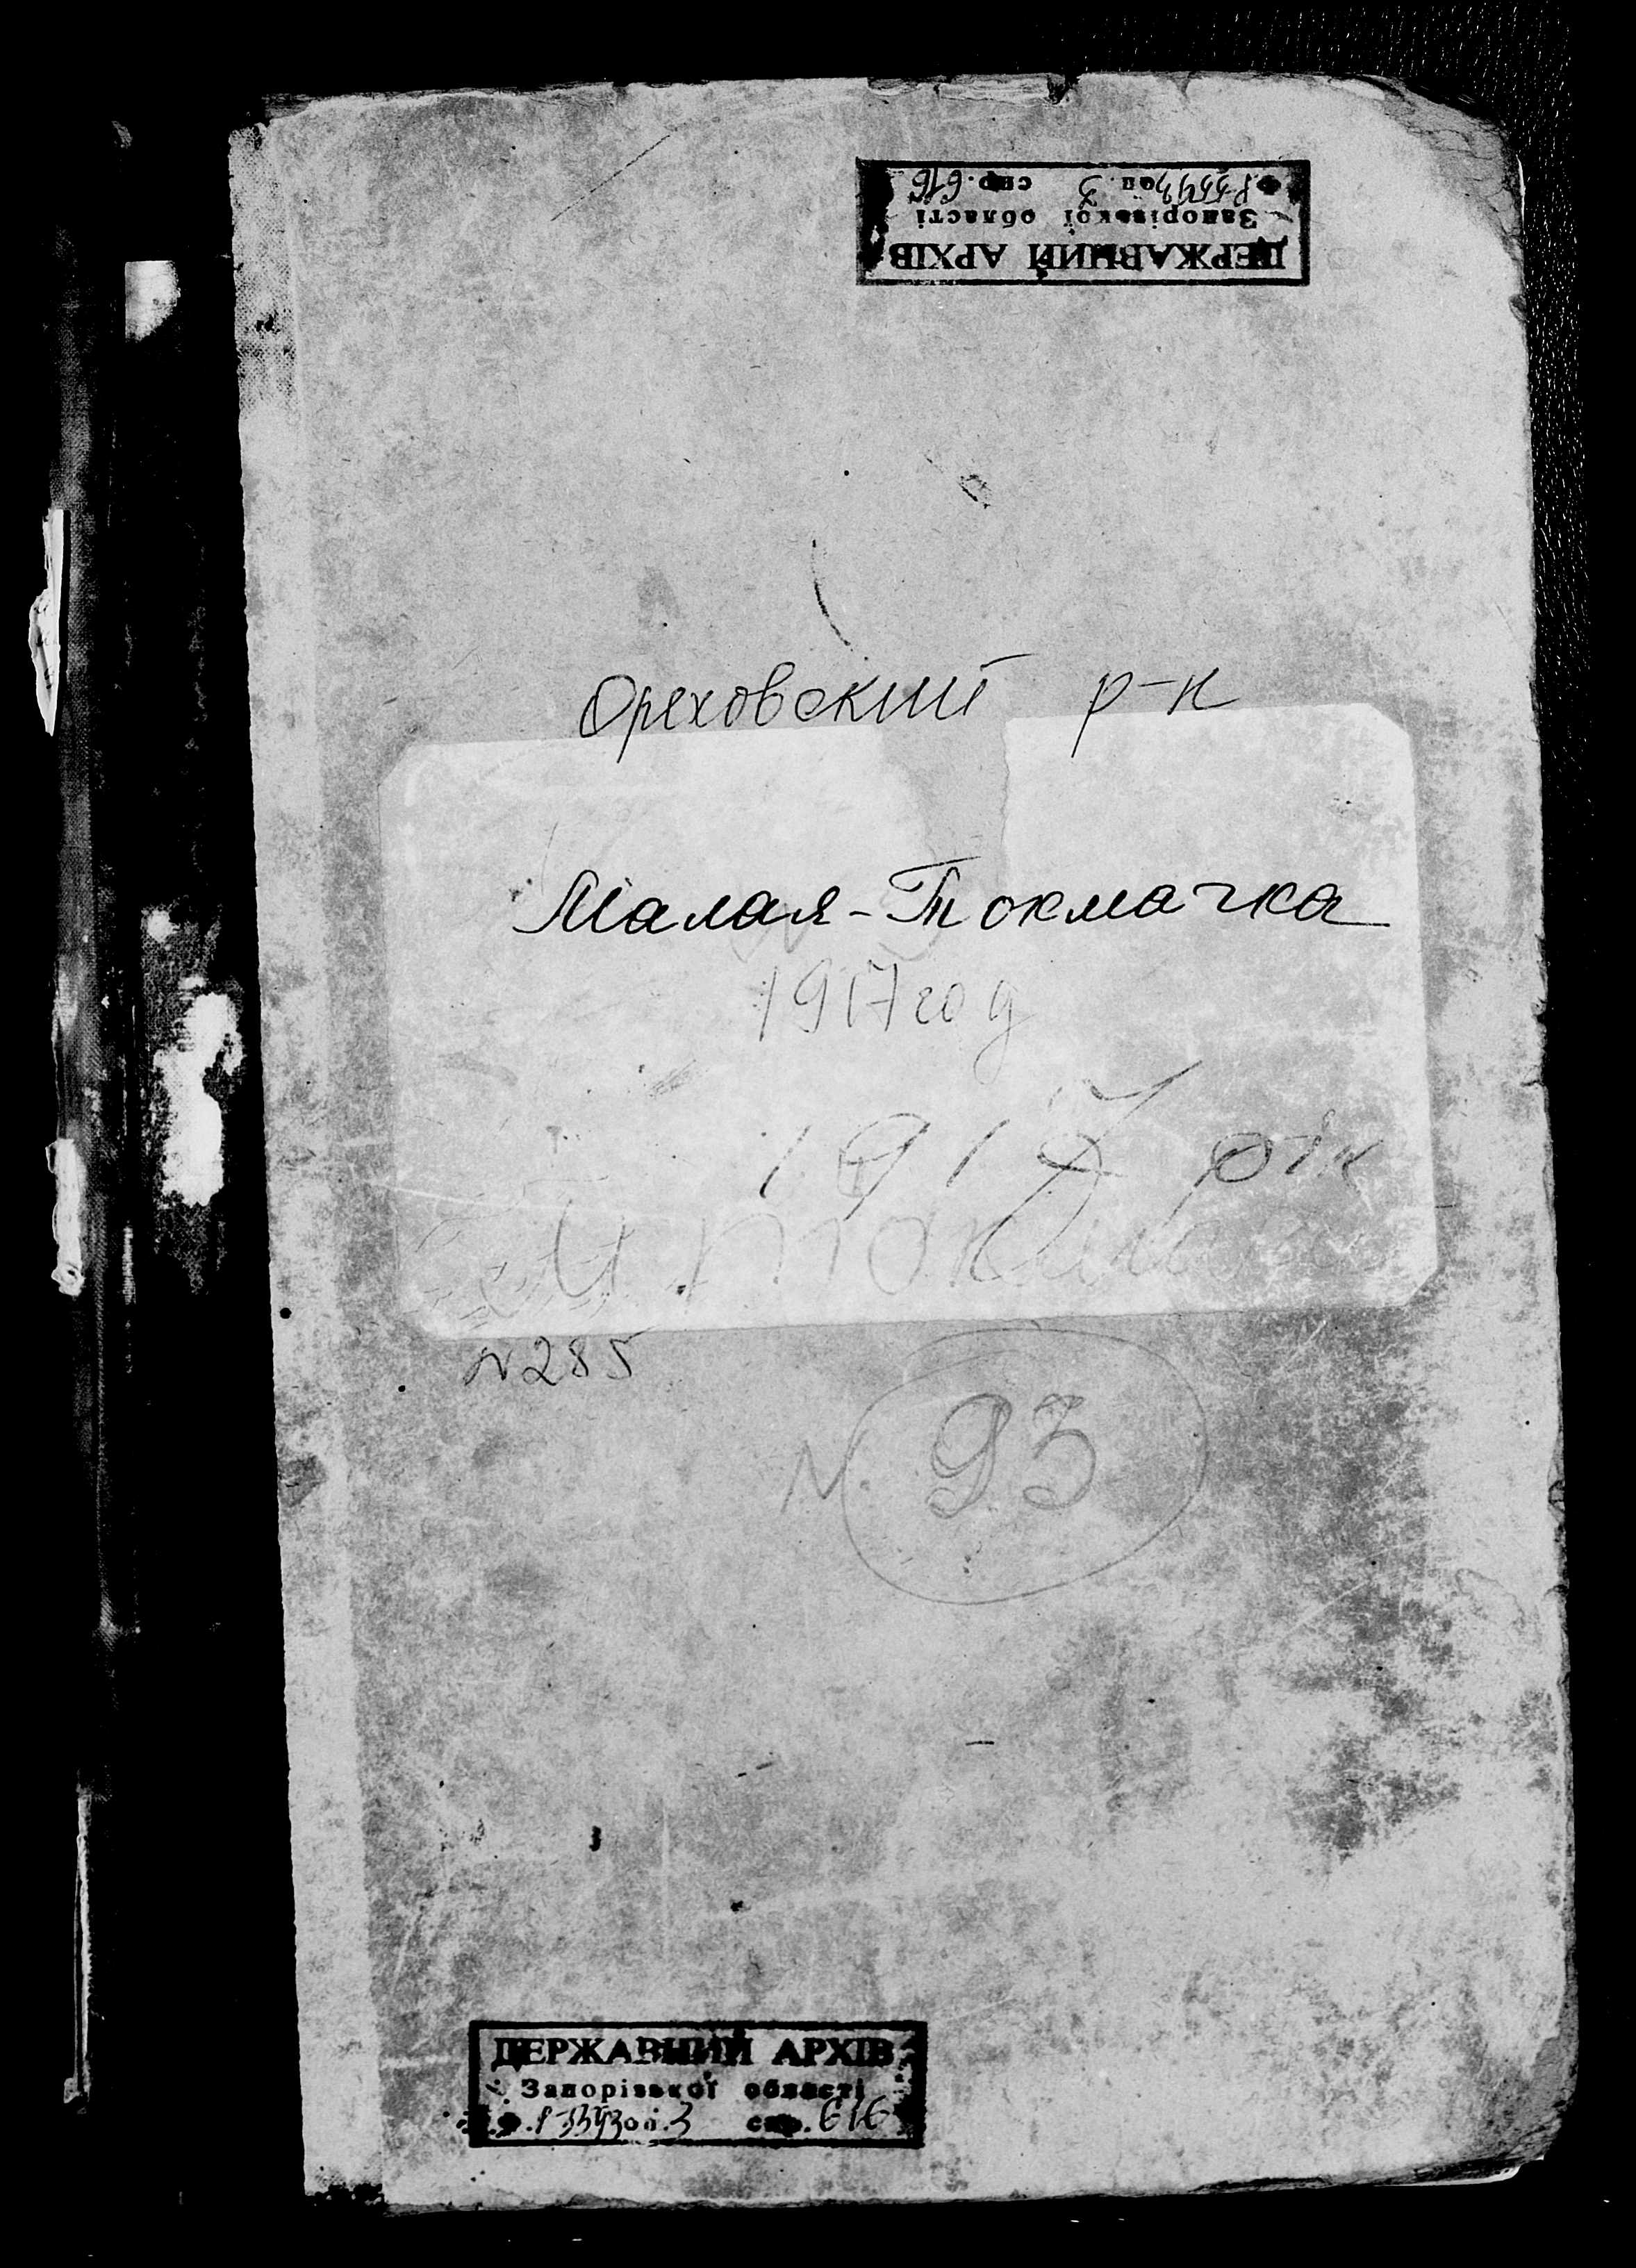 ДЕРЖАВНИЙ АРХІВ
Запорізької області
Ф. Р-5593 оп. 3 спр. 616
Ореховский р-н
Малая-Токмачка
1917 год
1917 рік
М Токмачка
N 285
N 93
ДЕРЖАВНИЙ АРХІВ
Запорізької області
Ф. Р-5593 оп. 3 спр. 616